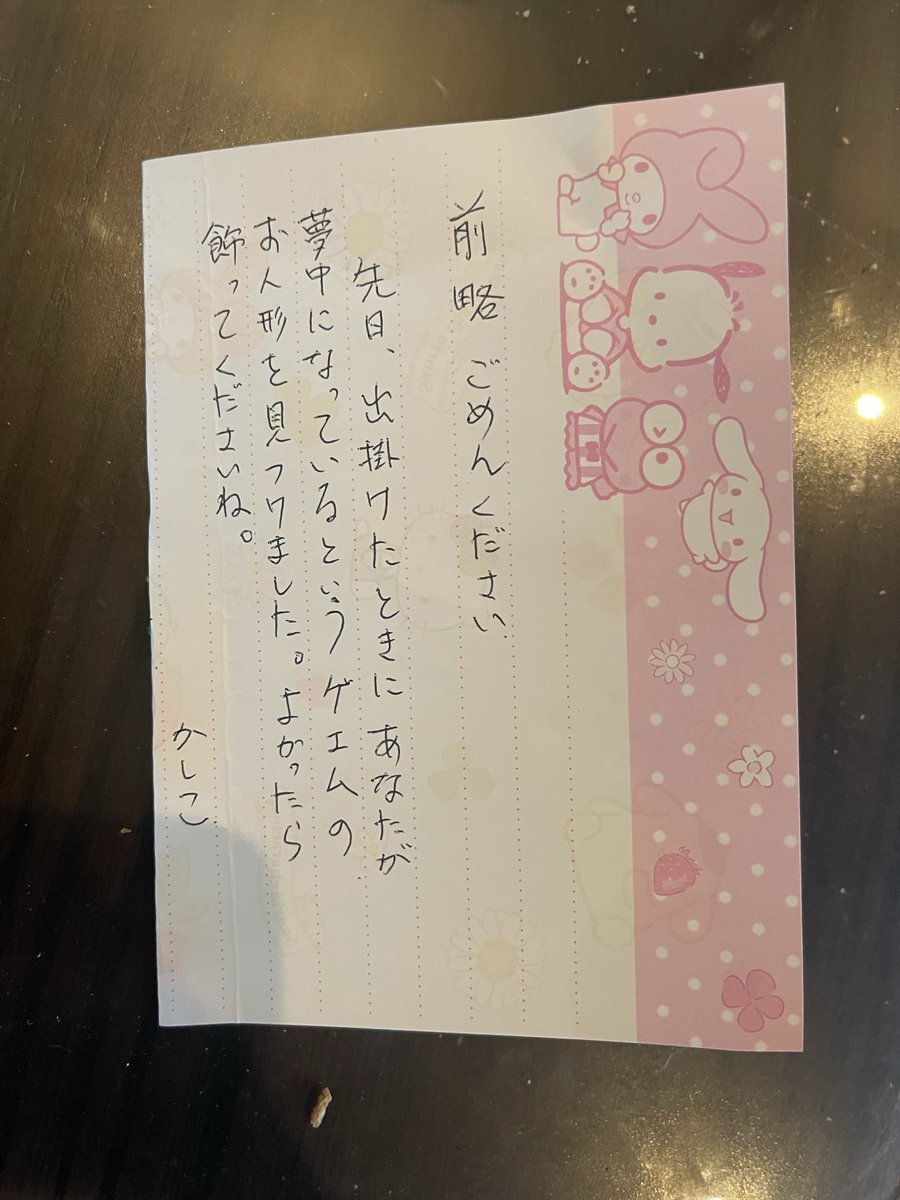 前略 ごめんください
先日、出掛けたときに あなたが
夢中になっているという ゲエムの
お人形を見つけました。よかったら
飾ってくださいね。
かしこ